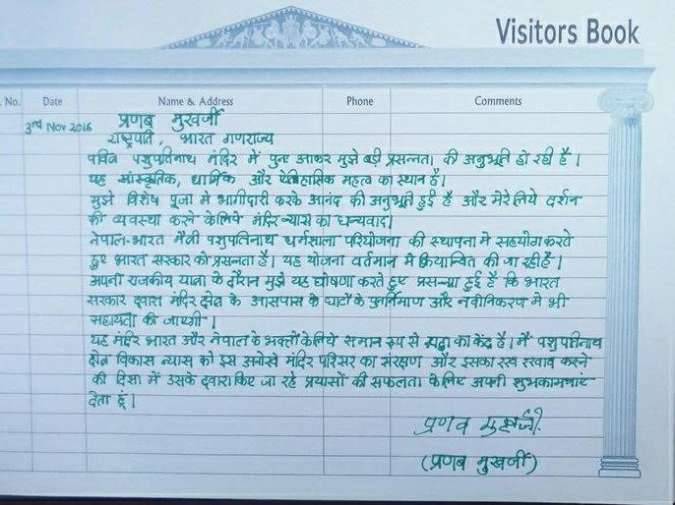 Visitors Book
No. Date Name & Address Phone Comments
3rd Nov 2016 प्रणब मुखर्जी
राष्ट्रपति, भारत गणराज्य
पवित्र पशुपतिनाथ मंदिर में पुनः आकर मुझे बड़ी प्रसन्नता की अनुभूति हो रही है।
यह सांस्कृतिक, धार्मिक और ऐतिहासिक महत्व का स्थान है।
मुझे विशेष पूजा में भागीदारी करके आनंद की अनुभूति हुई है और मेरे लिये दर्शन
की व्यवस्था करने के लिये मंदिर न्यास का धन्यवाद।
नेपाल-भारत मैत्री पशुपतिनाथ धर्मशाला परियोजना की स्थापना में सहयोग करते
हुए भारत सरकार को प्रसन्नता है। यह योजना वर्तमान में क्रियान्वित की जा रही है।
अपनी राजकीय यात्रा के दौरान मुझे यह घोषणा करते हुए हुई है कि भारत
सरकार द्वारा मंदिर क्षेत्र के आसपास के घाटों के पुनर्निमाण और नवीनिकरण में भी
सहायता की जाएगी।
यह मंदिर भारत और नेपाल के भक्तों के लिये समान रूप से श्रद्धा का केंद्र है। मैं पशुपतिनाथ
क्षेत्र विकास न्यास को इस अनोखे मंदिर परिसर का संरक्षण और इसका रख रखाव करने
की दिशा में उसके द्वारा किए जा रहे प्रयासों की सफलता के लिए अपनी शुभकामनाएं
देता हूं।
प्रणब मुखर्जी
(प्रणब मुखर्जी)